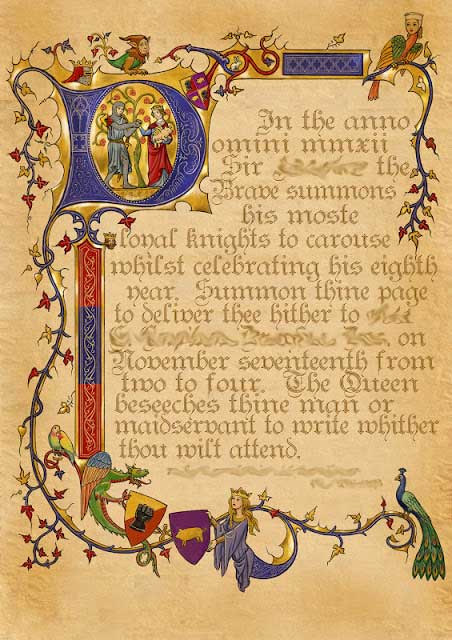 In the anno
Domini mmxii
Sir the
Brave summons
his moste
loyal knights to carouse
whilst celebrating his eighth
year. Summon thine page
to deliver thee hither to
, on
November seventeenth from
two to four. The Queen
beseeches thine man or
maidservant to write whither
thou wilt attend.